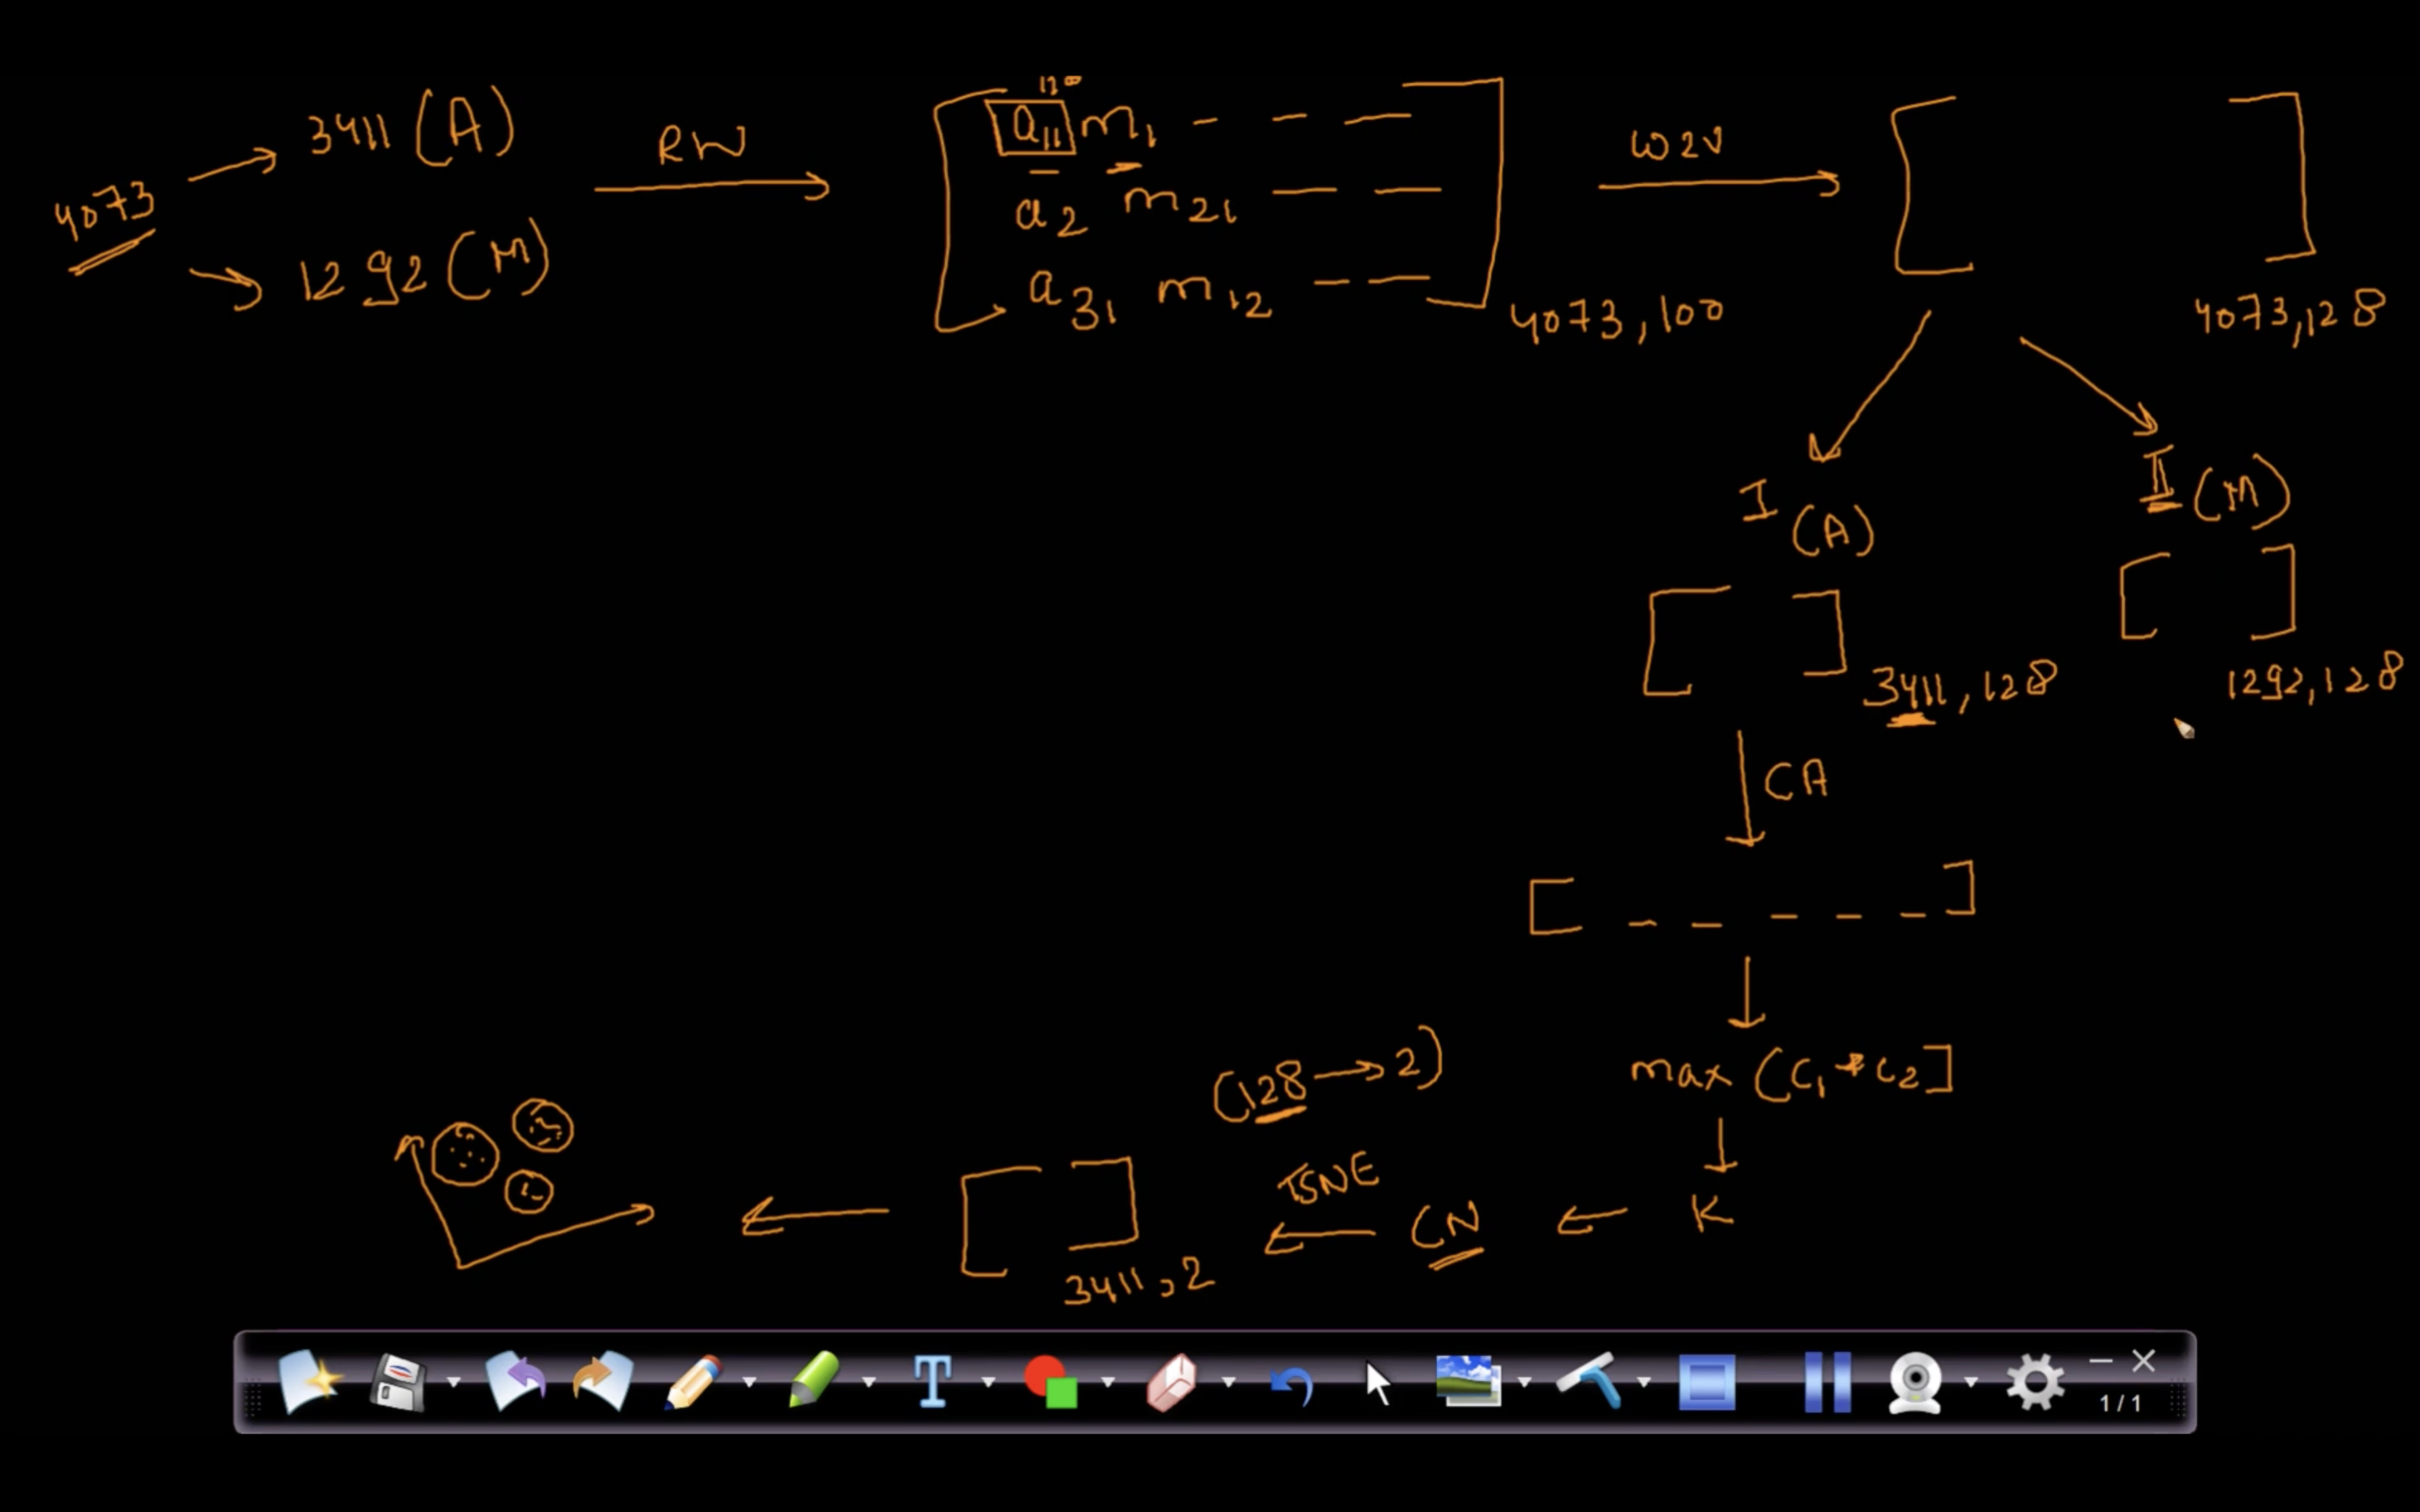 4073
3411 (A)
1292 (M)
RW
a11 m1 - - -
a2 m21 - -
a31 m12 - -
4073, 100
W2V
4073, 128
I (A)
II (M)
3411, 128
1292, 128
CA
[ - - - - - ]
max (C1 * C2]
K
CN
TSNE
(128 → 2)
3411, 2
T
1 / 1